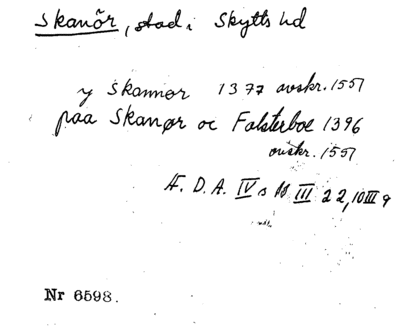 Skanör, stad i Skytts hd
y Skannor 1377 avskr. 1557
paa Skanør oc Falsterboe 1396
avskr. 1557
Æ. D. A. IV s III 22, 10 III 9
Nr 6598.